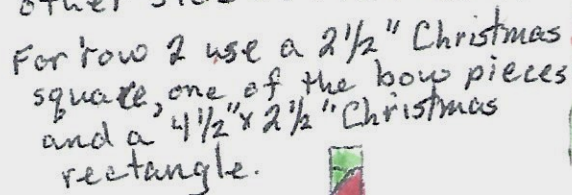 other side
For row 2 use a 2 1/2" Christmas
square, one of the bow pieces
and a 4 1/2" x 2 1/2" Christmas
rectangle.